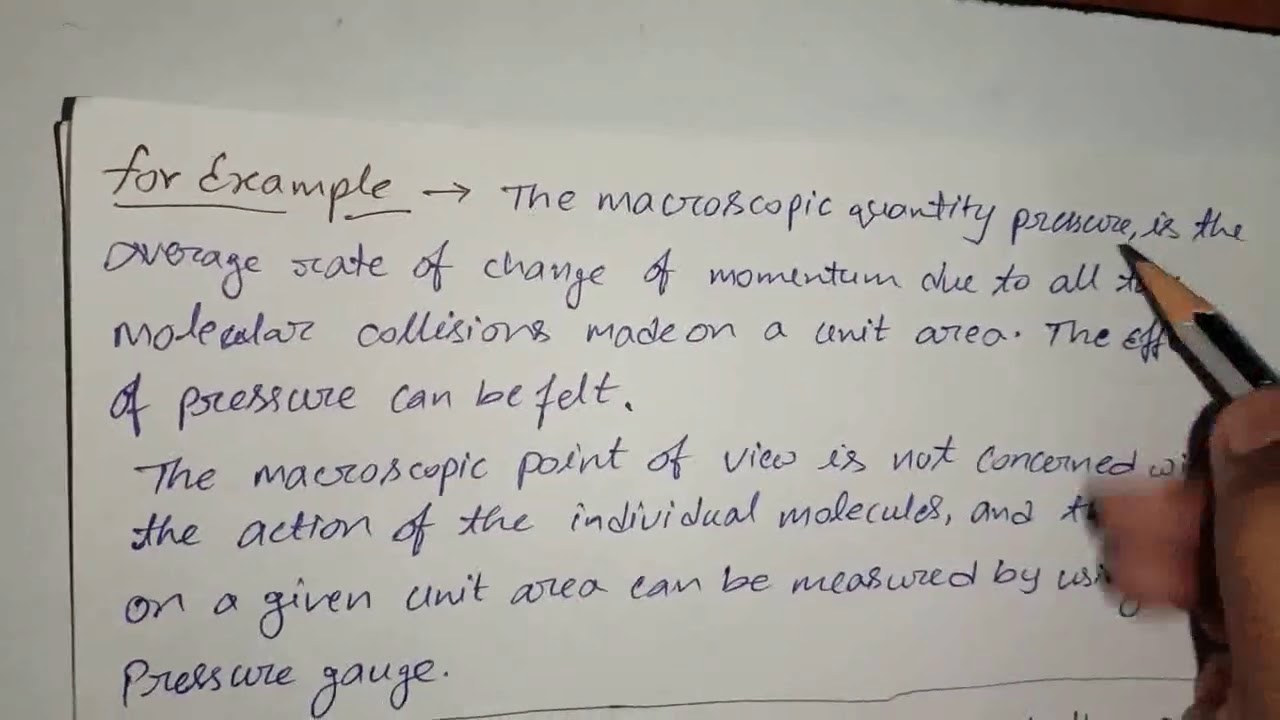 for Example → The macroscopic quantity pressure, is the
average rate of change of momentum due to all
molecular collisions made on a unit area. The
of pressure can be felt.
The macroscopic point of view is not concerned
the action of the individual molecules, and
on a given unit area can be measured by
Pressure gauge.